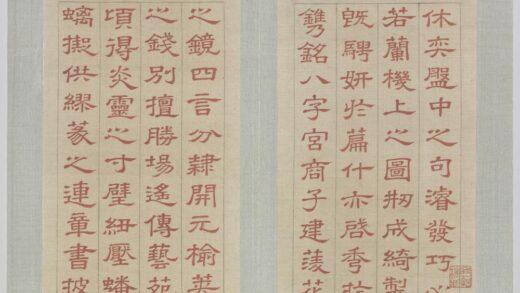 休奕盤中之句濬發巧心
若蘭機上之圖剏成綺製
既騁妍於篇什亦啓秀於
鐫銘八字宮商子建菱花
之鏡四言分隸開元榆莢
之錢別擅勝場遙傳藝苑
頃得炎靈之寸璧紐壓蟠
螭供繆篆之連章書披